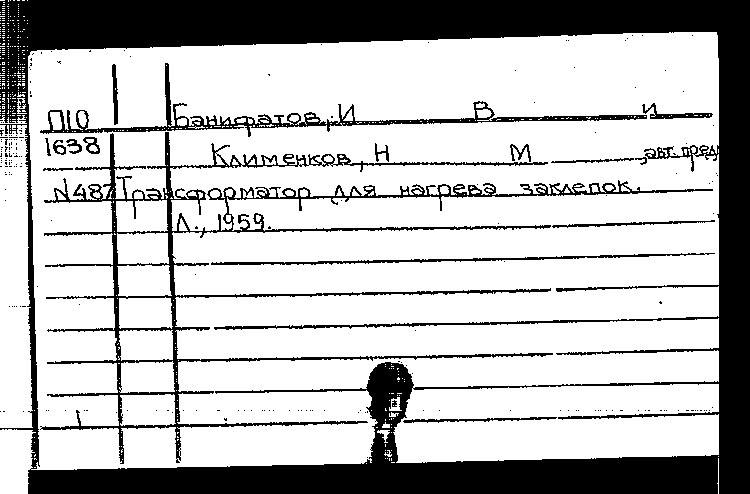 П10 Банифатов, И В и
1638 Клименков, Н М , авт. пред
N487 Трансформатор для нагрева заклепок.
Л., 1959.